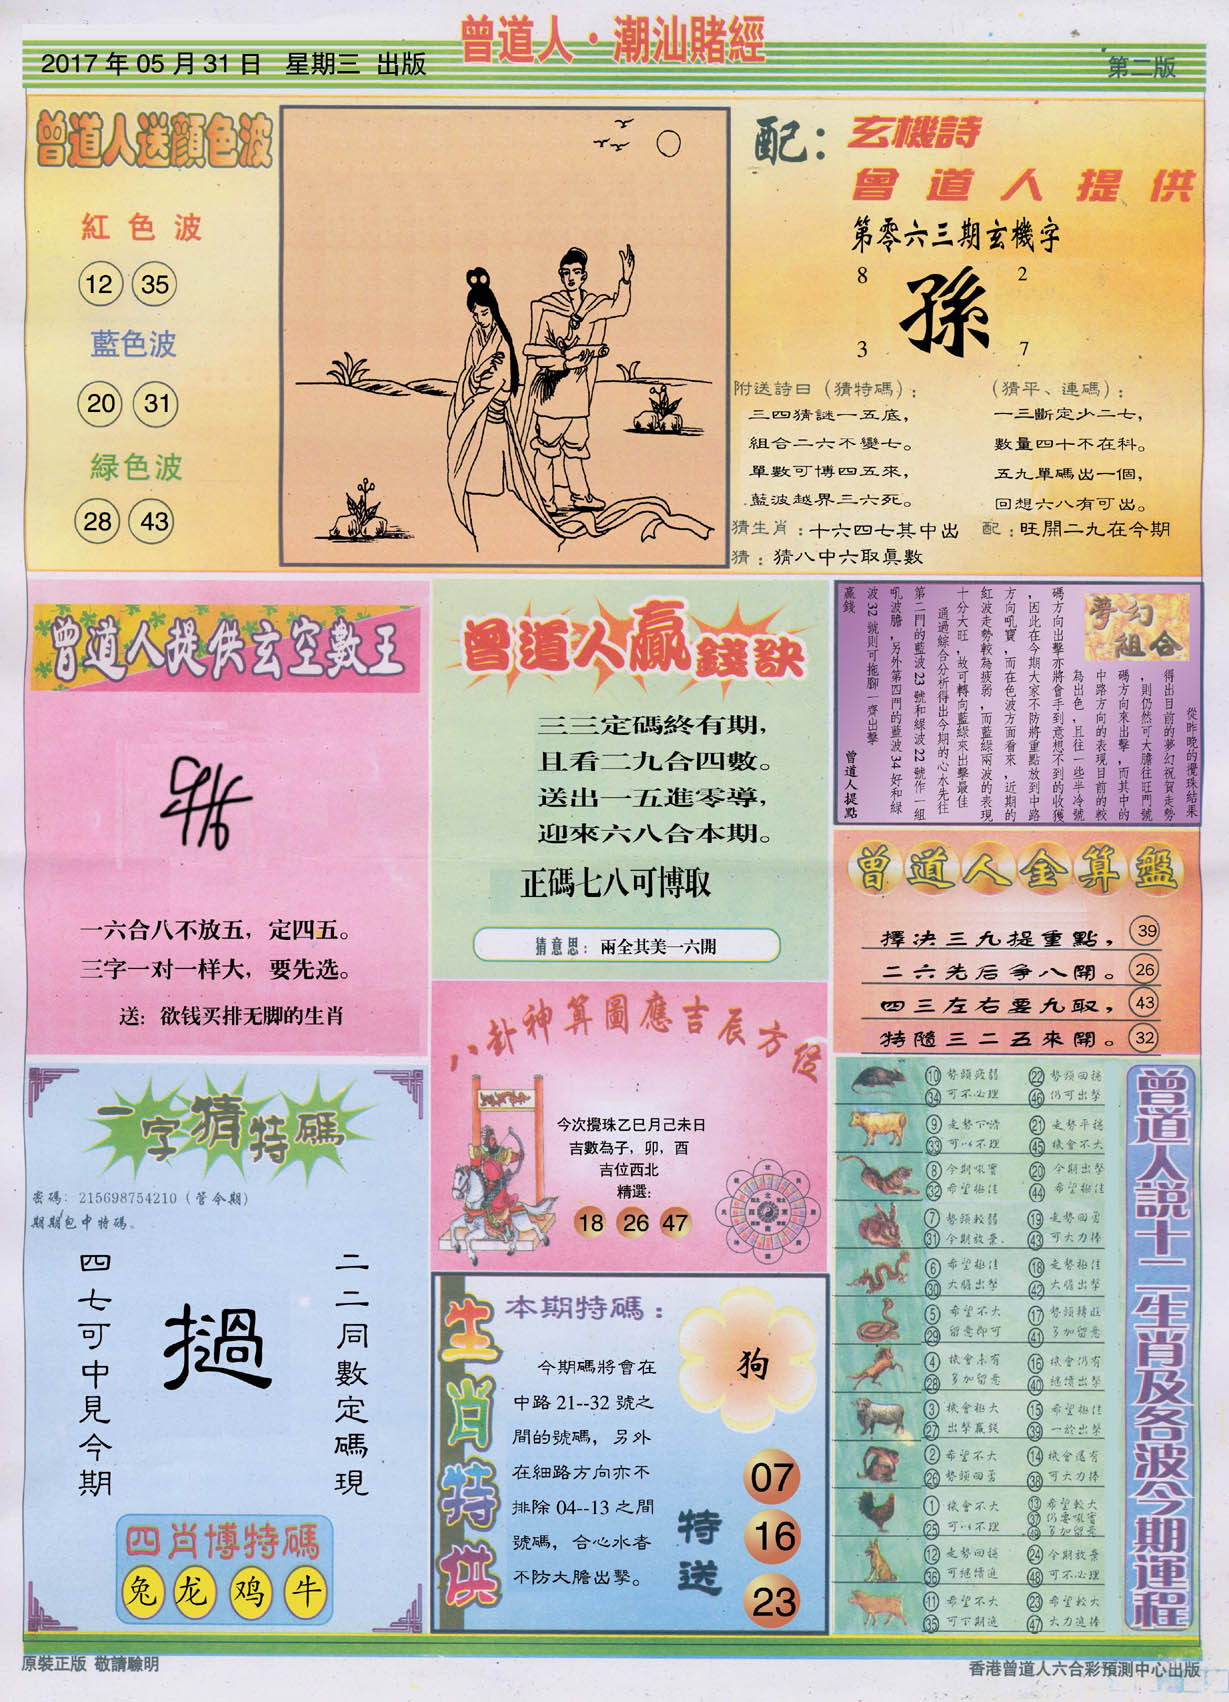 曾道人·潮汕賭經
2017 年 05 月 31 日 星期三 出版
第二版
曾道人送顏色波
紅色波
12 35
藍色波
20 31
緑色波
28 43
配：
玄機詩
曾道人提供
第零六三期玄機字
8 2
孫
3 7
附送詩日（猜特碼）：
三四猜謎一五底，
組合二六不變七。
單數可博四五來，
藍波越界三六死。
（猜平、連碼）：
一三斷定少二七，
數量四十不在科。
五九單碼出一個，
回想六八有可出。
猜生肖：十六四七其中出
配：旺開二九在今期
猜：猜八中六取眞數
曾道人提供玄空數王
一六合八不放五，定四五。
三字一对一样大，要先选。
送：欲钱买排无脚的生肖
曾道人贏錢訣
三三定碼終有期，
且看二九合四數。
送出一五進零導，
迎來六八合本期。
正碼七八可博取
猜意思：兩全其美一六開
夢幻組合
從昨晚的攪珠結果
得出目前的夢幻祝賀走勢
，則仍然可大膽往旺門號
碼方向來出擊，而其中的
中路方向的表現目前的較
為出色，且往一些半冷號
碼方向出擊亦將會手到意想不到的收獲
，因此在今期大家不防將重點放到中路
方向吼寶，而在色波方面看來，近期的
紅波走勢較為疲弱，而藍綠兩波的表現
十分大旺，故可轉向藍綠來出擊最佳
通過綜合分析得出今期的心水先往
第二門的藍波 23 號和綠波 22 號作一組
吼波膽，另外第四門的藍波 34 好和綠
波 32 號則可拖腳一齊出擊
贏錢
曾道人提點
曾道人金算盤
擇決三九提重點， 39
二六先后爭八開。 26
四三左右要九取， 43
特隨三二五來開。 32
八卦神算圖應吉辰方位
今次攪珠乙巳月己未日
吉數為子，卯，酉
吉位西北
精選：
18 26 47
一字猜特碼
密碼：215698754210（管今期）
期期包中特碼。
二二同數定碼現
撾
四七可中見今期
四肖博特碼
兔 龙 鸡 牛
生肖特供
本期特碼：
今期碼將會在
中路 21--32 號之
間的號碼，另外
在細路方向亦不
排除 04--13 之間
號碼，合心水者
不防大膽出擊。
狗
特送
07
16
23
曾道人説十二生肖及各波今期運程
10 勢頭疲弱 22 勢頭回穩
34 可不必理 46 仍可出擊
9 走勢下滑 21 走勢平穩
33 可以不理 45 機會不大
8 今期吼寶 20 今期出擊
32 希望極佳 44 希望極佳
7 勢頭較弱 19 走勢回勇
31 今期放棄 43 可大力捧
6 希望極佳 18 走勢極佳
30 大膽出擊 42 大膽出擊
5 希望不大 17 勢頭轉旺
29 留意即可 41 多加留意
4 機會未有 16 機會仍有
28 多加留意 40 繼續出擊
3 機會極大 15 希望極佳
27 出擊贏錢 39 一於出擊
2 希望不大 14 機會還有
26 勢頭回勇 38 可大力捧
1 機會不大 13 希望較大
25 可以不理 37 仍要吼寶
49 多加留意
12 走勢回穩 24 今期放棄
36 可繼續追 48 可不必理
11 希望不大 23 希望較大
35 可下期追 47 大力追捧
原裝正版 敬請驗明
香港曾道人六合彩預測中心出版